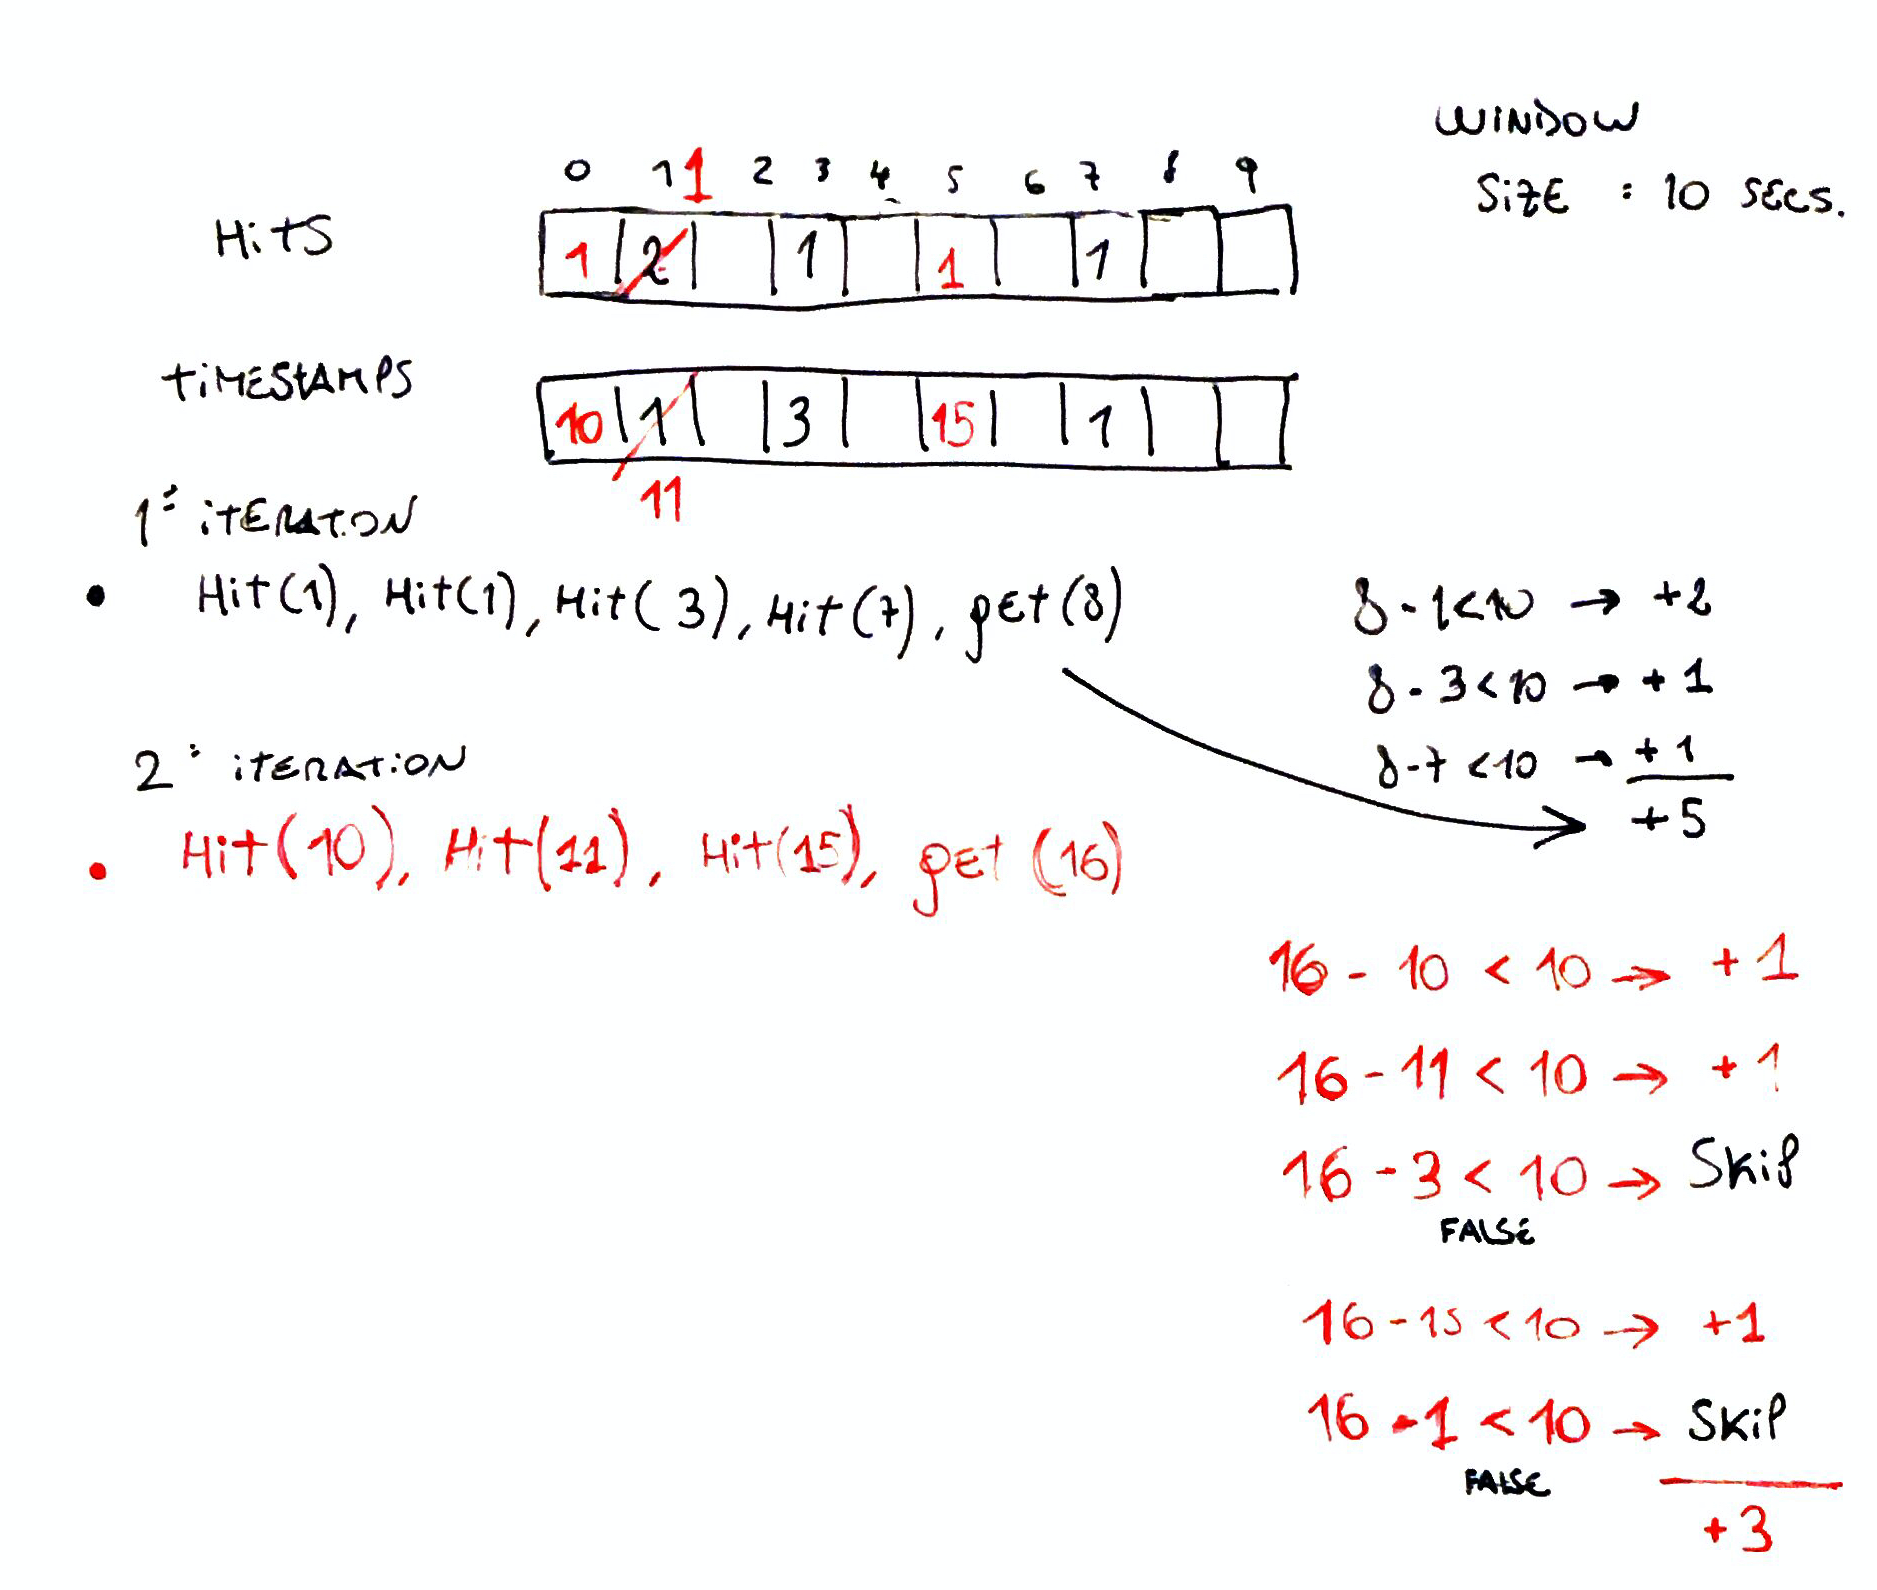 WINDOW
SIZE : 10 SECS.
0 1 1 2 3 4 5 6 7 8 9
HITS 1 2 1 1 1
TIMESTAMPS 10 1 3 15 1
11
1º ITERATION
• Hit(1), Hit(1), Hit(3), Hit(7), get(8)
8 - 1 < 10 → +2
8 - 3 < 10 → +1
8 - 7 < 10 → +1
+5
2º ITERATION
• Hit(10), Hit(11), Hit(15), get(16)
16 - 10 < 10 → +1
16 - 11 < 10 → +1
16 - 3 < 10 → SKIP
FALSE
16 - 15 < 10 → +1
16 - 1 < 10 → SKIP
FALSE
+3